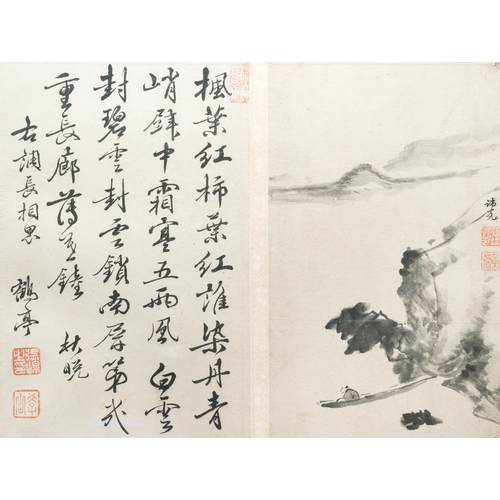 楓葉紅柿葉紅誰染丹青
峭壁中霜寒五兩風 白雲
封碧雲封雲鎖南屏第幾
重長廊薄暮鐘 秋晚
古調長相思 鶴亭